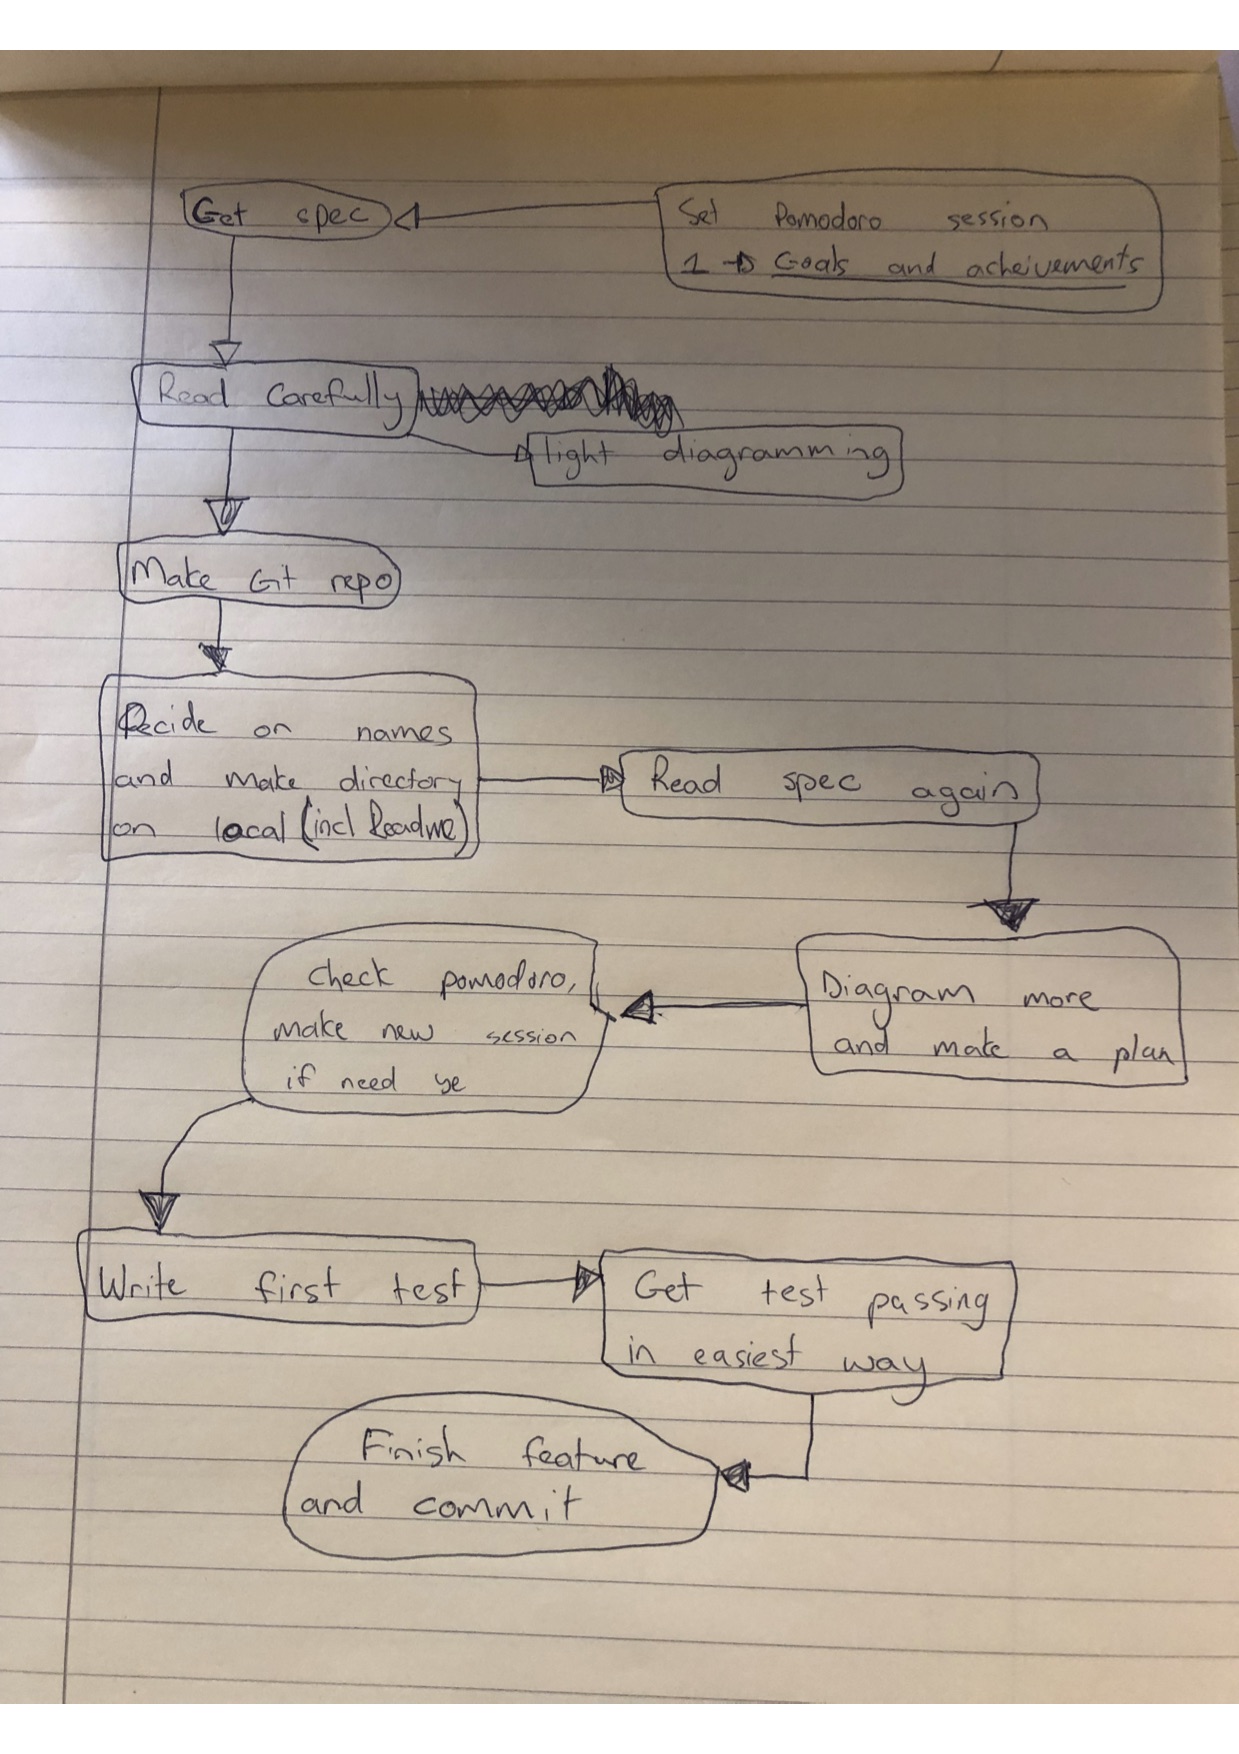 Get spec
Set Pomodoro session
1 → Goals and acheivements
Read Carefully
light diagramming
Make Git repo
Decide on names
and make directory
on local (incl Readme)
Read spec again
Diagram more
and make a plan
Check pomodoro,
make new session
if need ye
Write first test
Get test passing
in easiest way
Finish feature
and commit